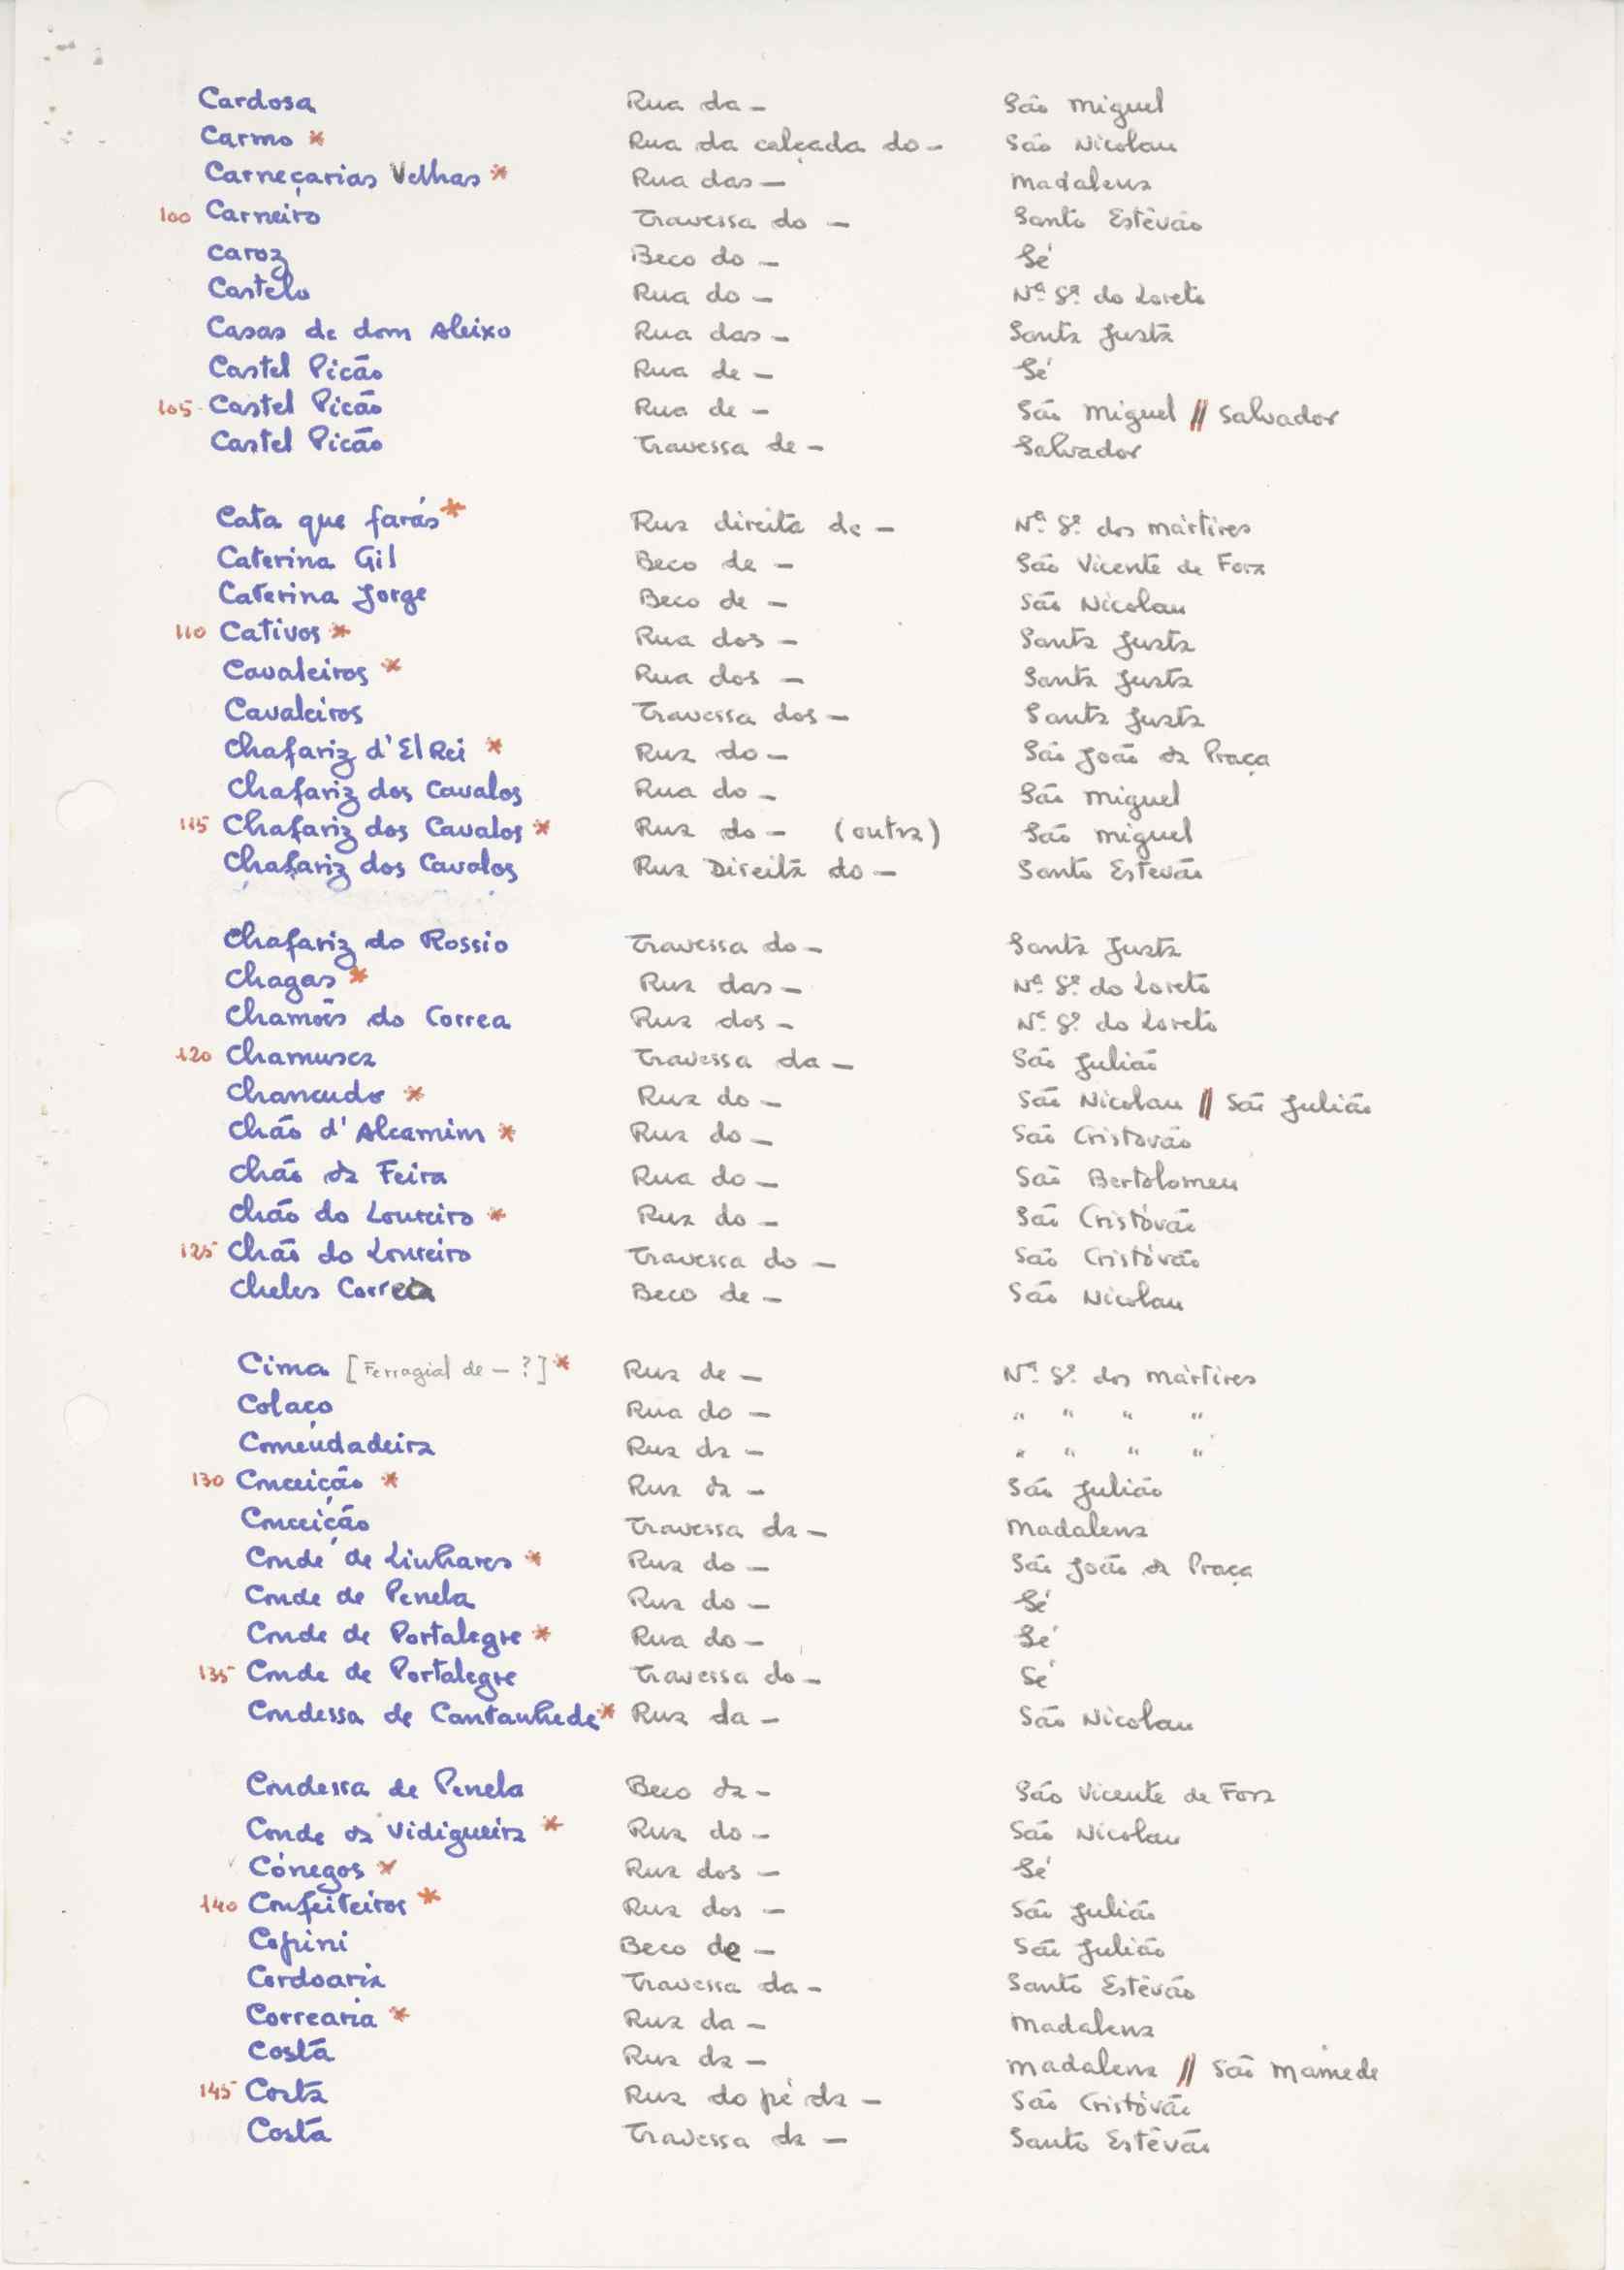 Cardosa Rua da – São Miguel
Carmo * Rua da calçada do – São Nicolau
Carneçarias Velhas * Rua das – Madalena
100 Carneiro Travessa do – Santo Estêvão
Caroz Beco do – Sé
Castelo Rua do – Nª Sª do Loreto
Casas de dom Aleixo Rua das – Santa Justa
Castel Picão Rua de – Sé
105 Castel Picão Rua de – São Miguel // Salvador
Castel Picão Travessa de – Salvador
Cata que farás * Rua direita de – Nª Sª dos Mártires
Caterina Gil Beco de – São Vicente de Fora
Caterina Jorge Beco de – São Nicolau
110 Cativos * Rua dos – Santa Justa
Cavaleiros * Rua dos – Santa Justa
Cavaleiros Travessa dos – Santa Justa
Chafariz d'El Rei * Rua do – São João da Praça
Chafariz dos Cavalos Rua do – São Miguel
115 Chafariz dos Cavalos * Rua do – (outra) São Miguel
Chafariz dos Cavalos Rua Direita do – Santo Estevão
Chafariz do Rossio Travessa do – Santa Justa
Chagas * Rua das – Nª Sª do Loreto
Chamões do Correa Rua dos – Nª Sª do Loreto
120 Chamusca Travessa da – São Julião
Chancudo * Rua do – São Nicolau // São Julião
Chão d'Alcamim * Rua do – São Cristóvão
Chão da Feira Rua do – São Bertolomeu
Chão do Loureiro * Rua do – São Cristóvão
125 Chão do Loureiro Travessa do – São Cristóvão
Cheles Correia Beco de – São Nicolau
Cima [Ferragial de – ?] * Rua de – Nª Sª dos Mártires
Colaço Rua do – " " " "
Comendadeira Rua da – " " " "
130 Conceição * Rua da – São Julião
Conceição Travessa da – Madalena
Conde de Linhares * Rua do – São João da Praça
Conde de Penela Rua do – Sé
Conde de Portalegre * Rua do – Sé
135 Conde de Portalegre Travessa do – Sé
Condessa de Cantanhede * Rua da – São Nicolau
Condessa de Penela Beco da – São Vicente de Fora
Conde da Vidigueira * Rua do – São Nicolau
Cónegos * Rua dos – Sé
140 Confeiteiros * Rua dos – São Julião
Beco de – São Julião
Cordoaria Travessa da – Santo Estêvão
Correaria * Rua da – Madalena
Costa Rua da – Madalena // São Mamede
145 Costa Rua do pé da – São Cristóvão
Costa Travessa da – Santo Estêvão